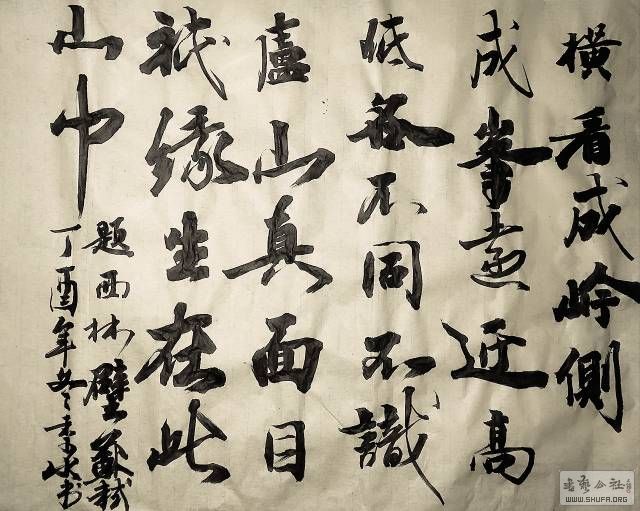 橫看成岭側
成峯遠近高
低各不同不識
廬山真面目
祇緣生在此
山中
題西林壁蘇軾
丁酉年书
WWW.SHUFA.ORG